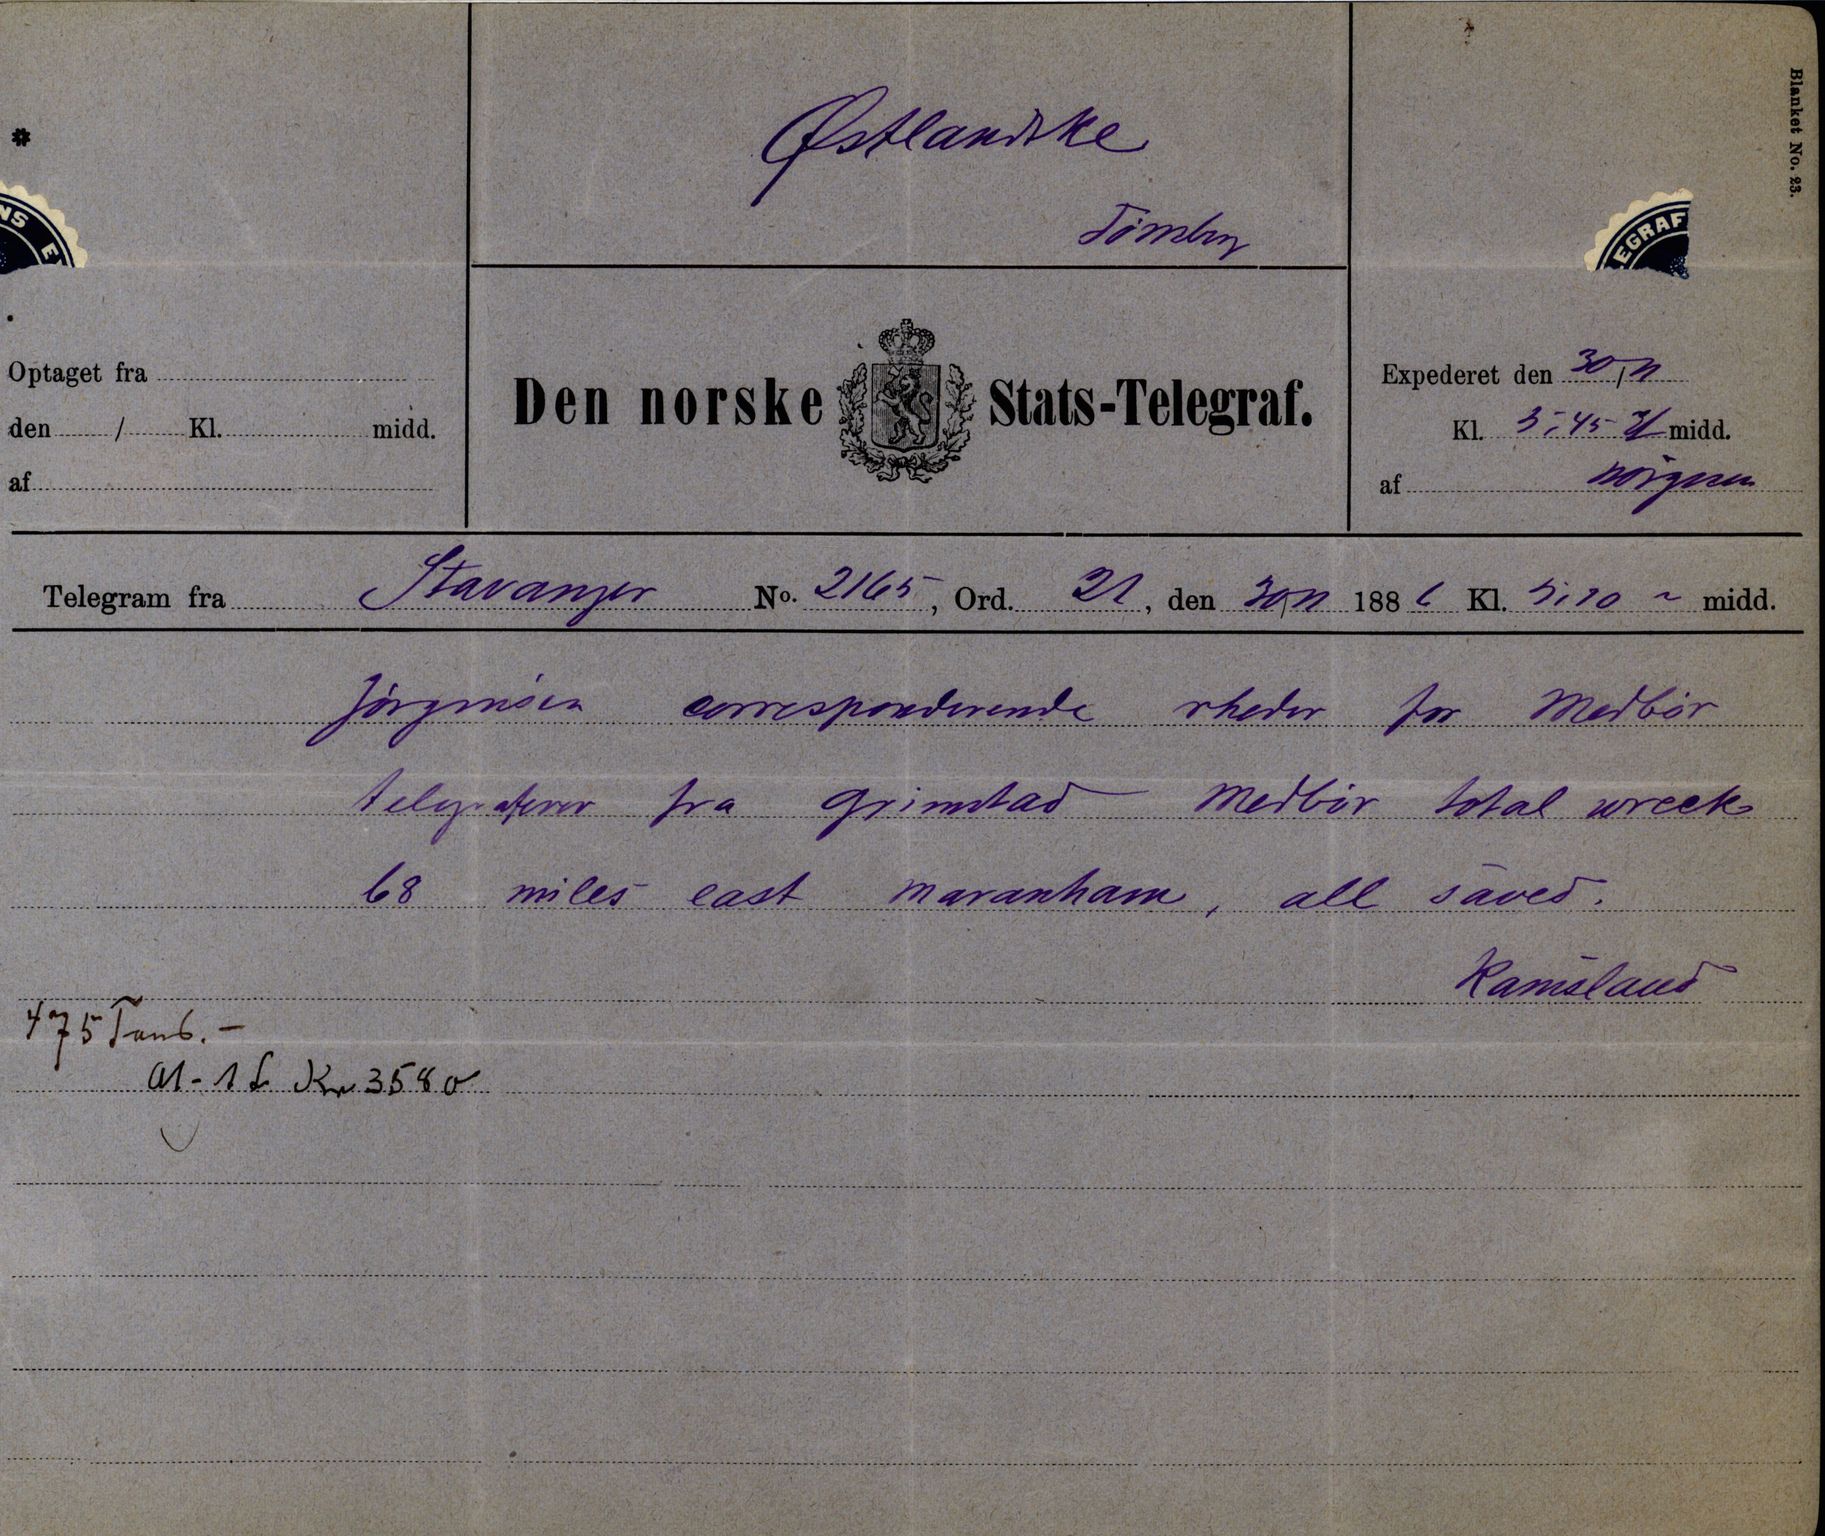 Blanket No. 23.
Østlandske
Tönsberg
NS E
EGRAF
Optaget fra
den / Kl. midd.
af
Den norske Stats-Telegraf.
Expederet den 30/11
Kl. 5,45 midd.
af
Telegram fra Stavanger No. 2165, Ord. 21, den 30/11 1886 Kl. 5,10 midd.
Jörgensen corresponderende rheder for Medbör
telegraferer fra Grimstad Medbör total wreck
68 miles east maranham, all saved.
Ramsland
475 Tons. –
A1 - 1 Kr 3580